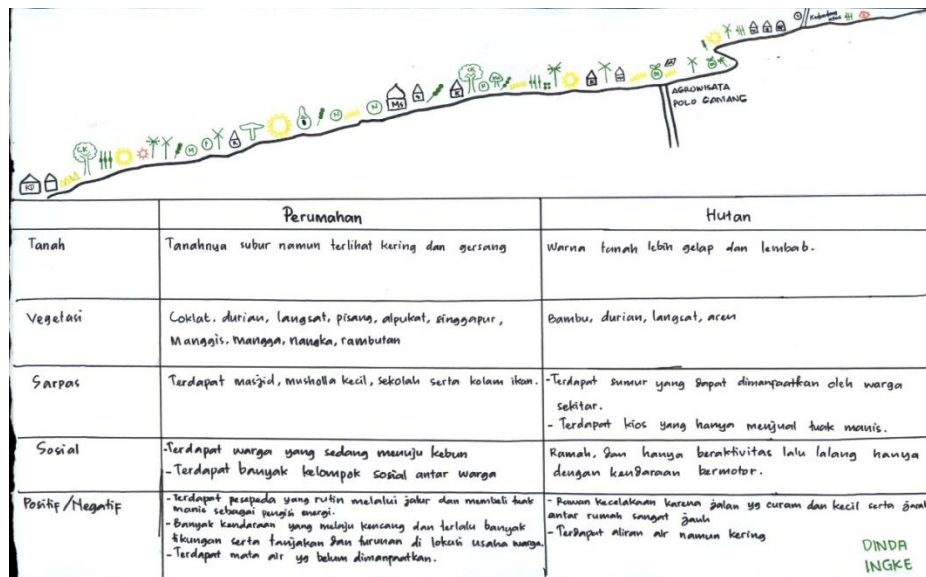 KD
CK
M
P
K
N
N
Ms
S
K
CK
P
K
AGROWISATA
POLO GAMANG
Perumahan
Hutan
Tanah
Tanahnya subur namun terlihat kering dan gersang
Warna tanah lebih gelap dan lembab.
Vegetasi
Coklat, durian, langsat, pisang, alpukat, singgapur,
Manggis, mangga, nangka, rambutan
Bambu, durian, langsat, aren
Sarpas
Terdapat masjid, musholla kecil, sekolah serta kolam ikan.
- Terdapat sumur yang dapat dimanpaatkan oleh warga
sekitar.
- Terdapat kios yang hanya menjual tuak manis.
Sosial
- Terdapat warga yang sedang menuju kebun
- Terdapat banyak kelompok sosial antar warga
Ramah, dan hanya beraktivitas lalu lalang hanya
dengan kendaraan bermotor.
Positif/Negatif
- Terdapat pesepeda yang rutin melalui jalur dan membeli tuak
manis sebagai pengisi energi.
- Banyak kendaraan yang melaju kencang dan terlalu banyak
tikungan serta tanjakan dan turunan di lokasi usaha warga.
- Terdapat mata air yg belum dimanpaatkan.
- Rawan kecelakaan karena jalan yg curam dan kecil serta jarak
antar rumah sangat jauh
- Terdapat aliran air namun kering
DINDA
INGKE